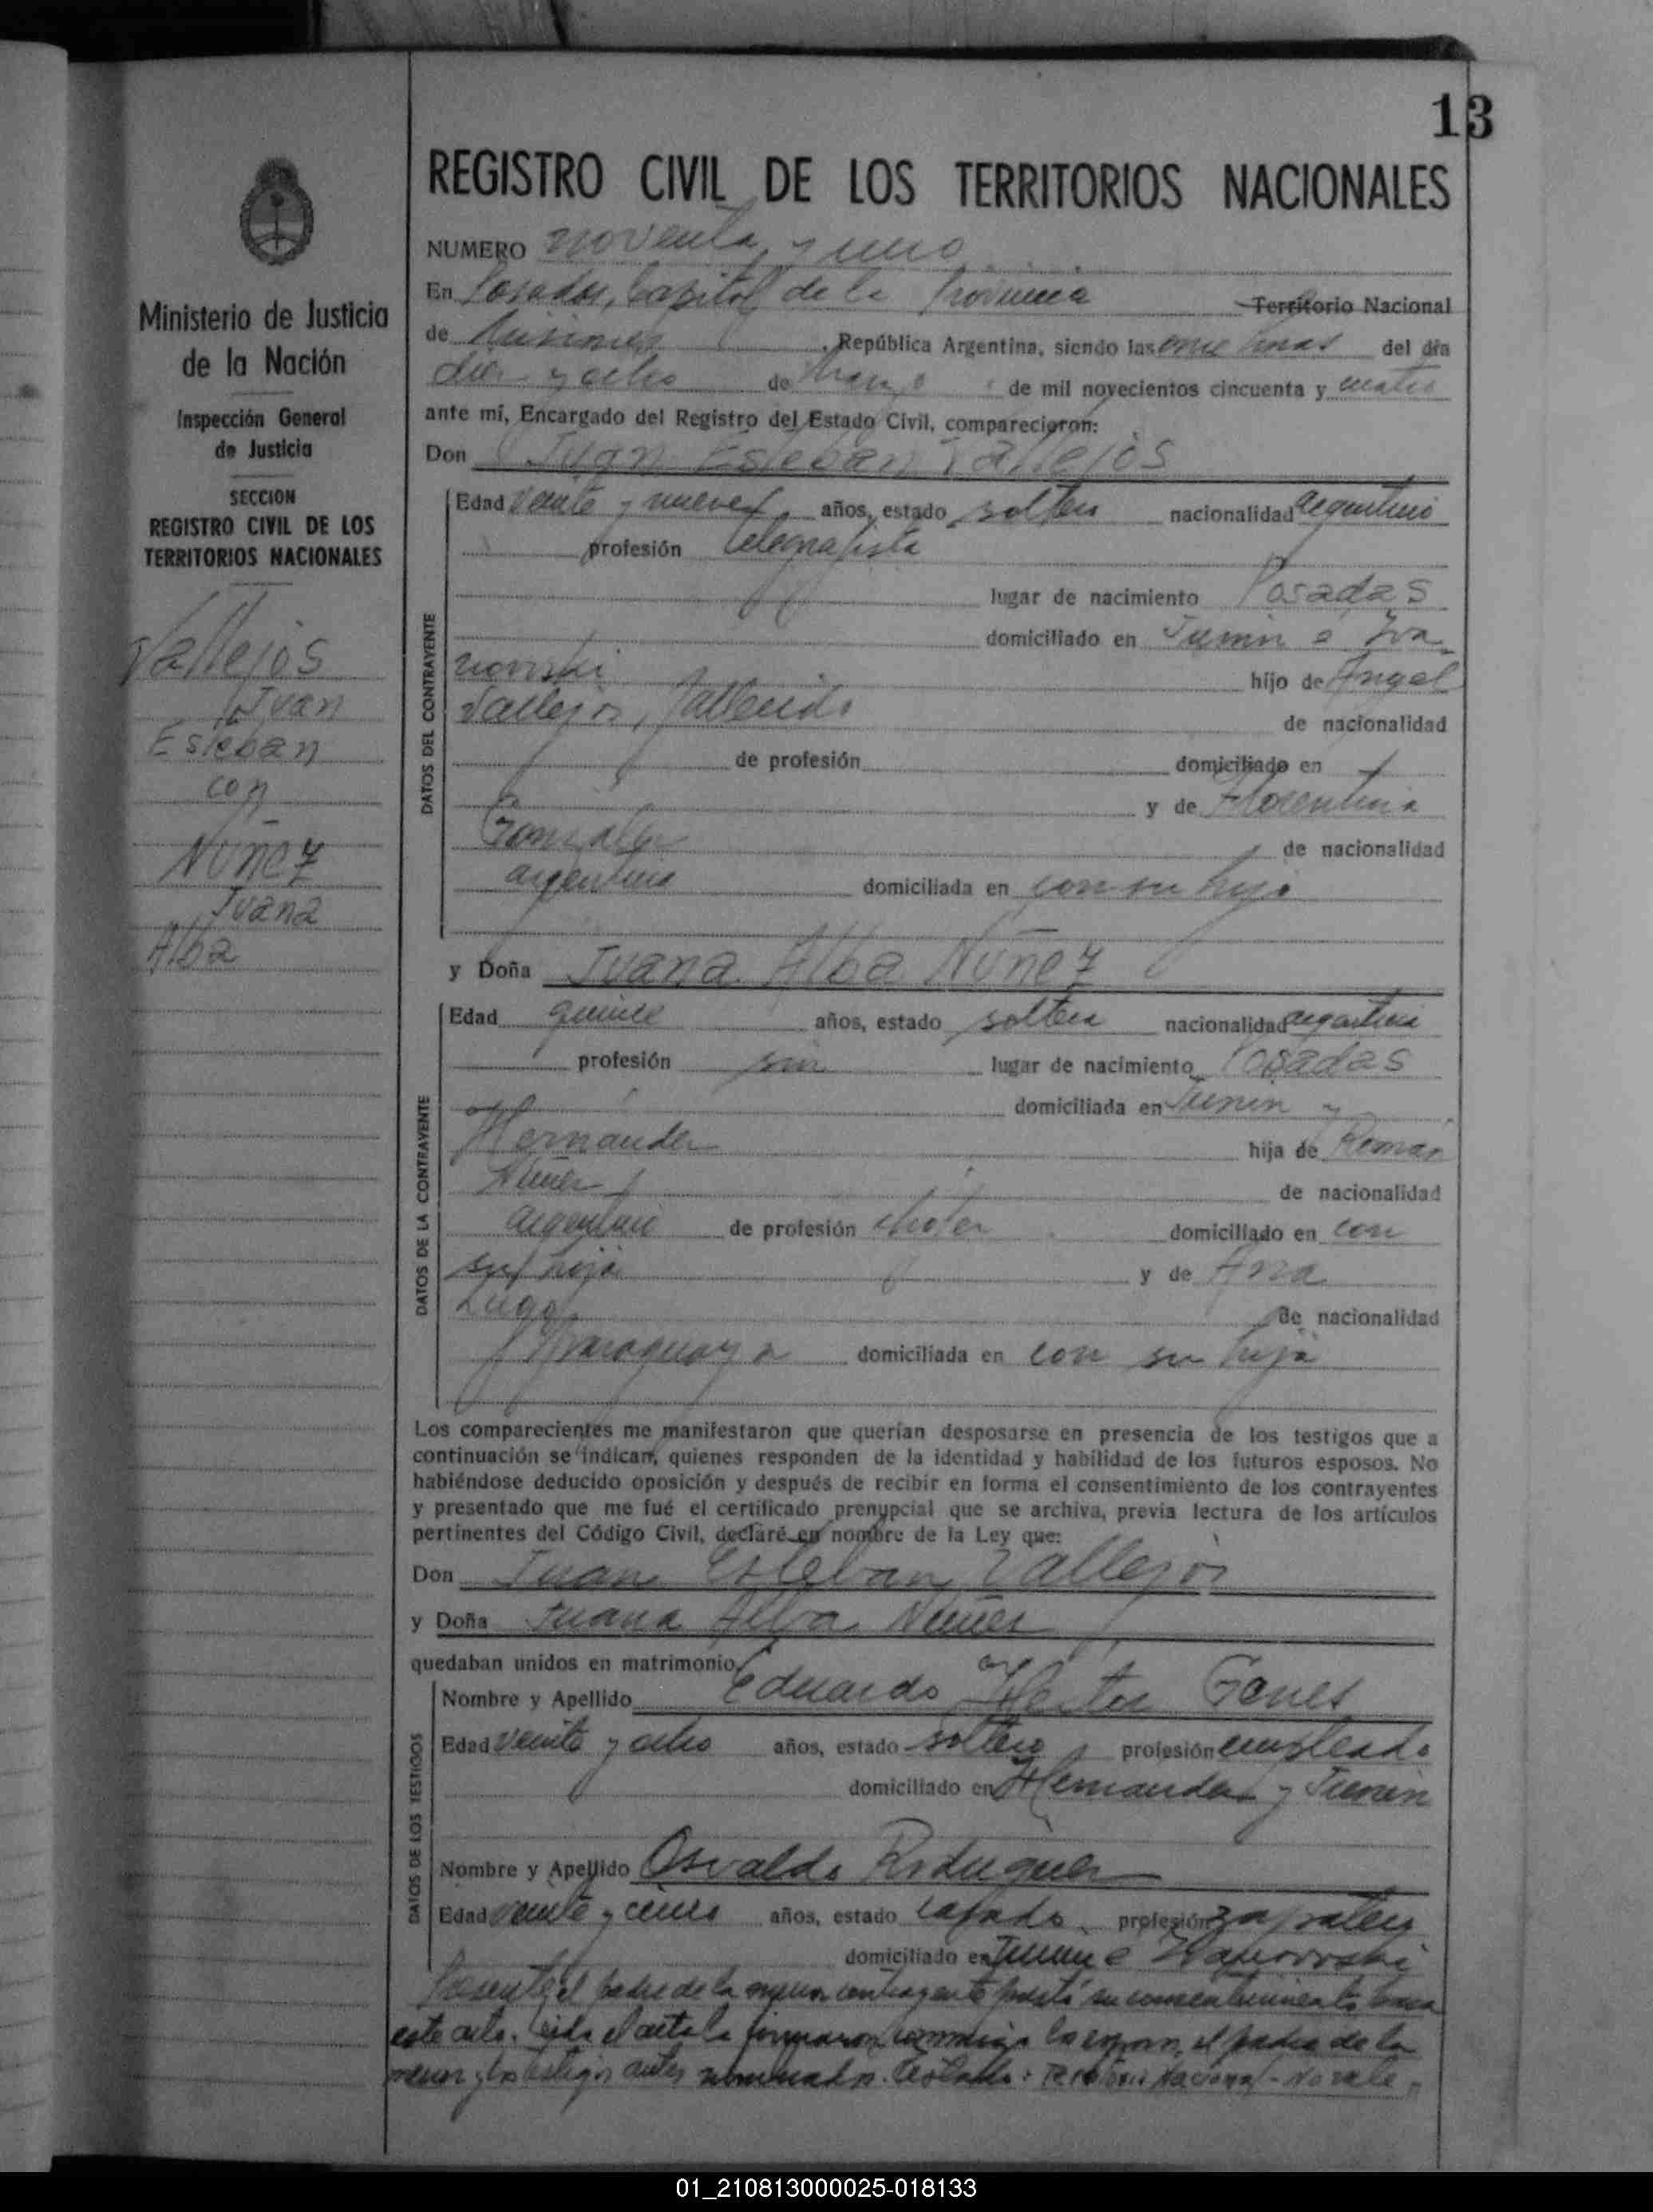 13
REGISTRO CIVIL DE LOS TERRITORIOS NACIONALES
Ministerio de Justicia
de la Nación
Inspección General
de Justicia
SECCION
REGISTRO CIVIL DE LOS
TERRITORIOS NACIONALES
Vallejos
Juan
Esteban
con
Núñez
Juana
Alba
NUMERO noventa y uno
En Posadas, Capital de la Provincia Territorio Nacional
de Misiones, República Argentina, siendo las once horas del día
diez y ocho de marzo de mil novecientos cincuenta y cuatro
ante mí, Encargado del Registro del Estado Civil, comparecieron:
Don Juan Esteban Vallejos
DATOS DEL CONTRAYENTE
Edad veinte y nueve años, estado soltero nacionalidad argentino
profesión telegrafista
lugar de nacimiento Posadas
domiciliado en Junin e Iva
novski hijo de Angel
Vallejos, fallecido de nacionalidad
de profesión domiciliado en
y de Florentina
Gonzalez de nacionalidad
argentina domiciliada en con su hijo
y Doña Juana Alba Núñez
DATOS DE LA CONTRAYENTE
Edad quince años, estado soltera nacionalidad argentina
profesión sin lugar de nacimiento Posadas
domiciliada en Junin y
Hernandez hija de Roman
Núñez de nacionalidad
argentino de profesión chofer domiciliado en con
su hija y de Ana
Lugo de nacionalidad
paraguaya domiciliada en con su hija
Los comparecientes me manifestaron que querían desposarse en presencia de los testigos que a
continuación se indican, quienes responden de la identidad y habilidad de los futuros esposos. No
habiéndose deducido oposición y después de recibir en forma el consentimiento de los contrayentes
y presentado que me fué el certificado prenupcial que se archiva, previa lectura de los artículos
pertinentes del Código Civil, declaré en nombre de la Ley que:
Don Juan Esteban Vallejos
y Doña Juana Alba Núñez
quedaban unidos en matrimonio
DATOS DE LOS TESTIGOS
Nombre y Apellido Eduardo Hector Genes
Edad veinte y ocho años, estado soltero profesión empleado
domiciliado en Hernandez y Junin
Nombre y Apellido Osvaldo Rodriguez
Edad veinte y cinco años, estado casado profesión zapatero
domiciliado en Junin e Ivanovski
Presente el padre de la menor contrayente prestó su consentimiento para
este acto. Leida el acta la firmaron conmigo los espos, el padre de la
menor y los testigos antes nombrados. Testado: Territorio Nacional - No vale
01_210813000025-018133